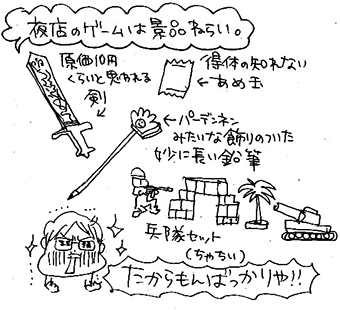 夜店のゲームは景品ねらい。
原価10円
くらいと思われる
剣
得体の知れない
あめ玉
パーデンネン
みたいな飾りのついた
妙に長い鉛筆
兵隊セット
(ちゃちい)
たからもんばっかりや!!